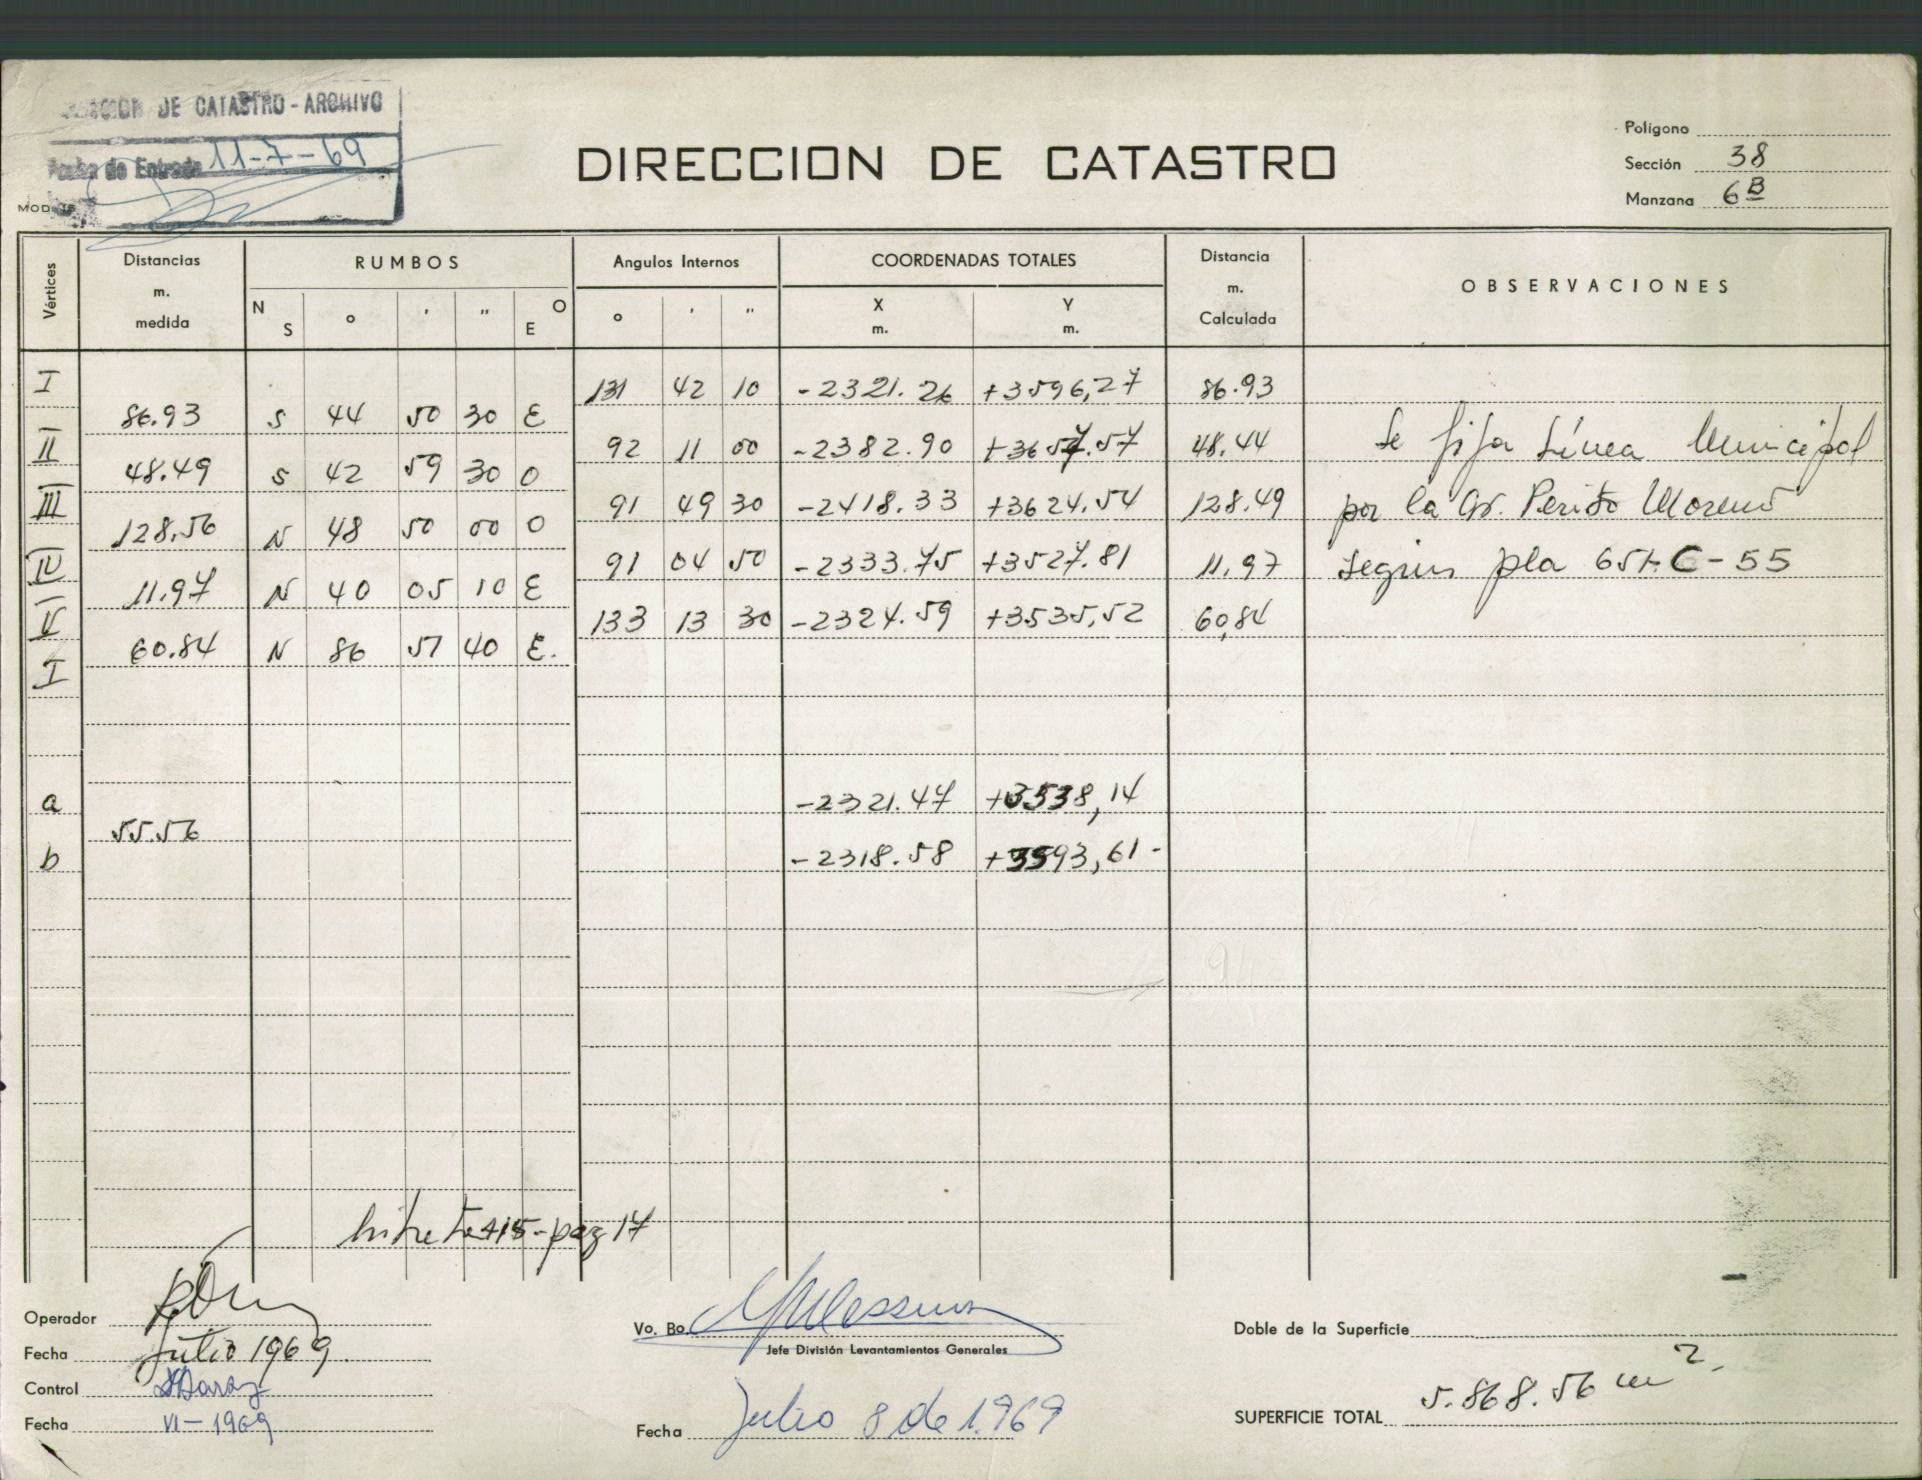 DE CATASTRO - ARCHIVO
Fecha de Entrada 11-7-69
MOD.
DIRECCION DE CATASTRO
Polígono
Sección 38
Manzana 6B
Vértices Distancias m. medida RUMBOS N S o ' " O E Angulos Internos o ' " COORDENADAS TOTALES X m. Y m. Distancia m. Calculada OBSERVACIONES
I 131 42 10 -2321.26 +3596,27 86.93
86.93 S 44 50 30 E
II 92 11 00 -2382.90 +3657.57 48.44
48.49 S 42 59 30 O
III 91 49 30 -2418.33 +3624.54 128.49
128,56 N 48 50 00 O
IV 91 04 50 -2333.75 +3527.81 11.97
11.97 N 40 05 10 E
V 133 13 30 -2324.59 +3535,52 60,84
60.84 N 86 57 40 E.
I
Se fija Línea Municipal
por la Av. Perito Moreno
según pla 651-C-55
a -2321.47 +3538,14
55.56
b -2318.58 +3593,61-
415-pag 17
Operador
Fecha Julio 1969.
Control
Fecha VI-1969
Vo. Bo.
Jefe División Levantamientos Generales
Fecha Julio 8 de 1.969
Doble de la Superficie
SUPERFICIE TOTAL 5.868.56 m2.